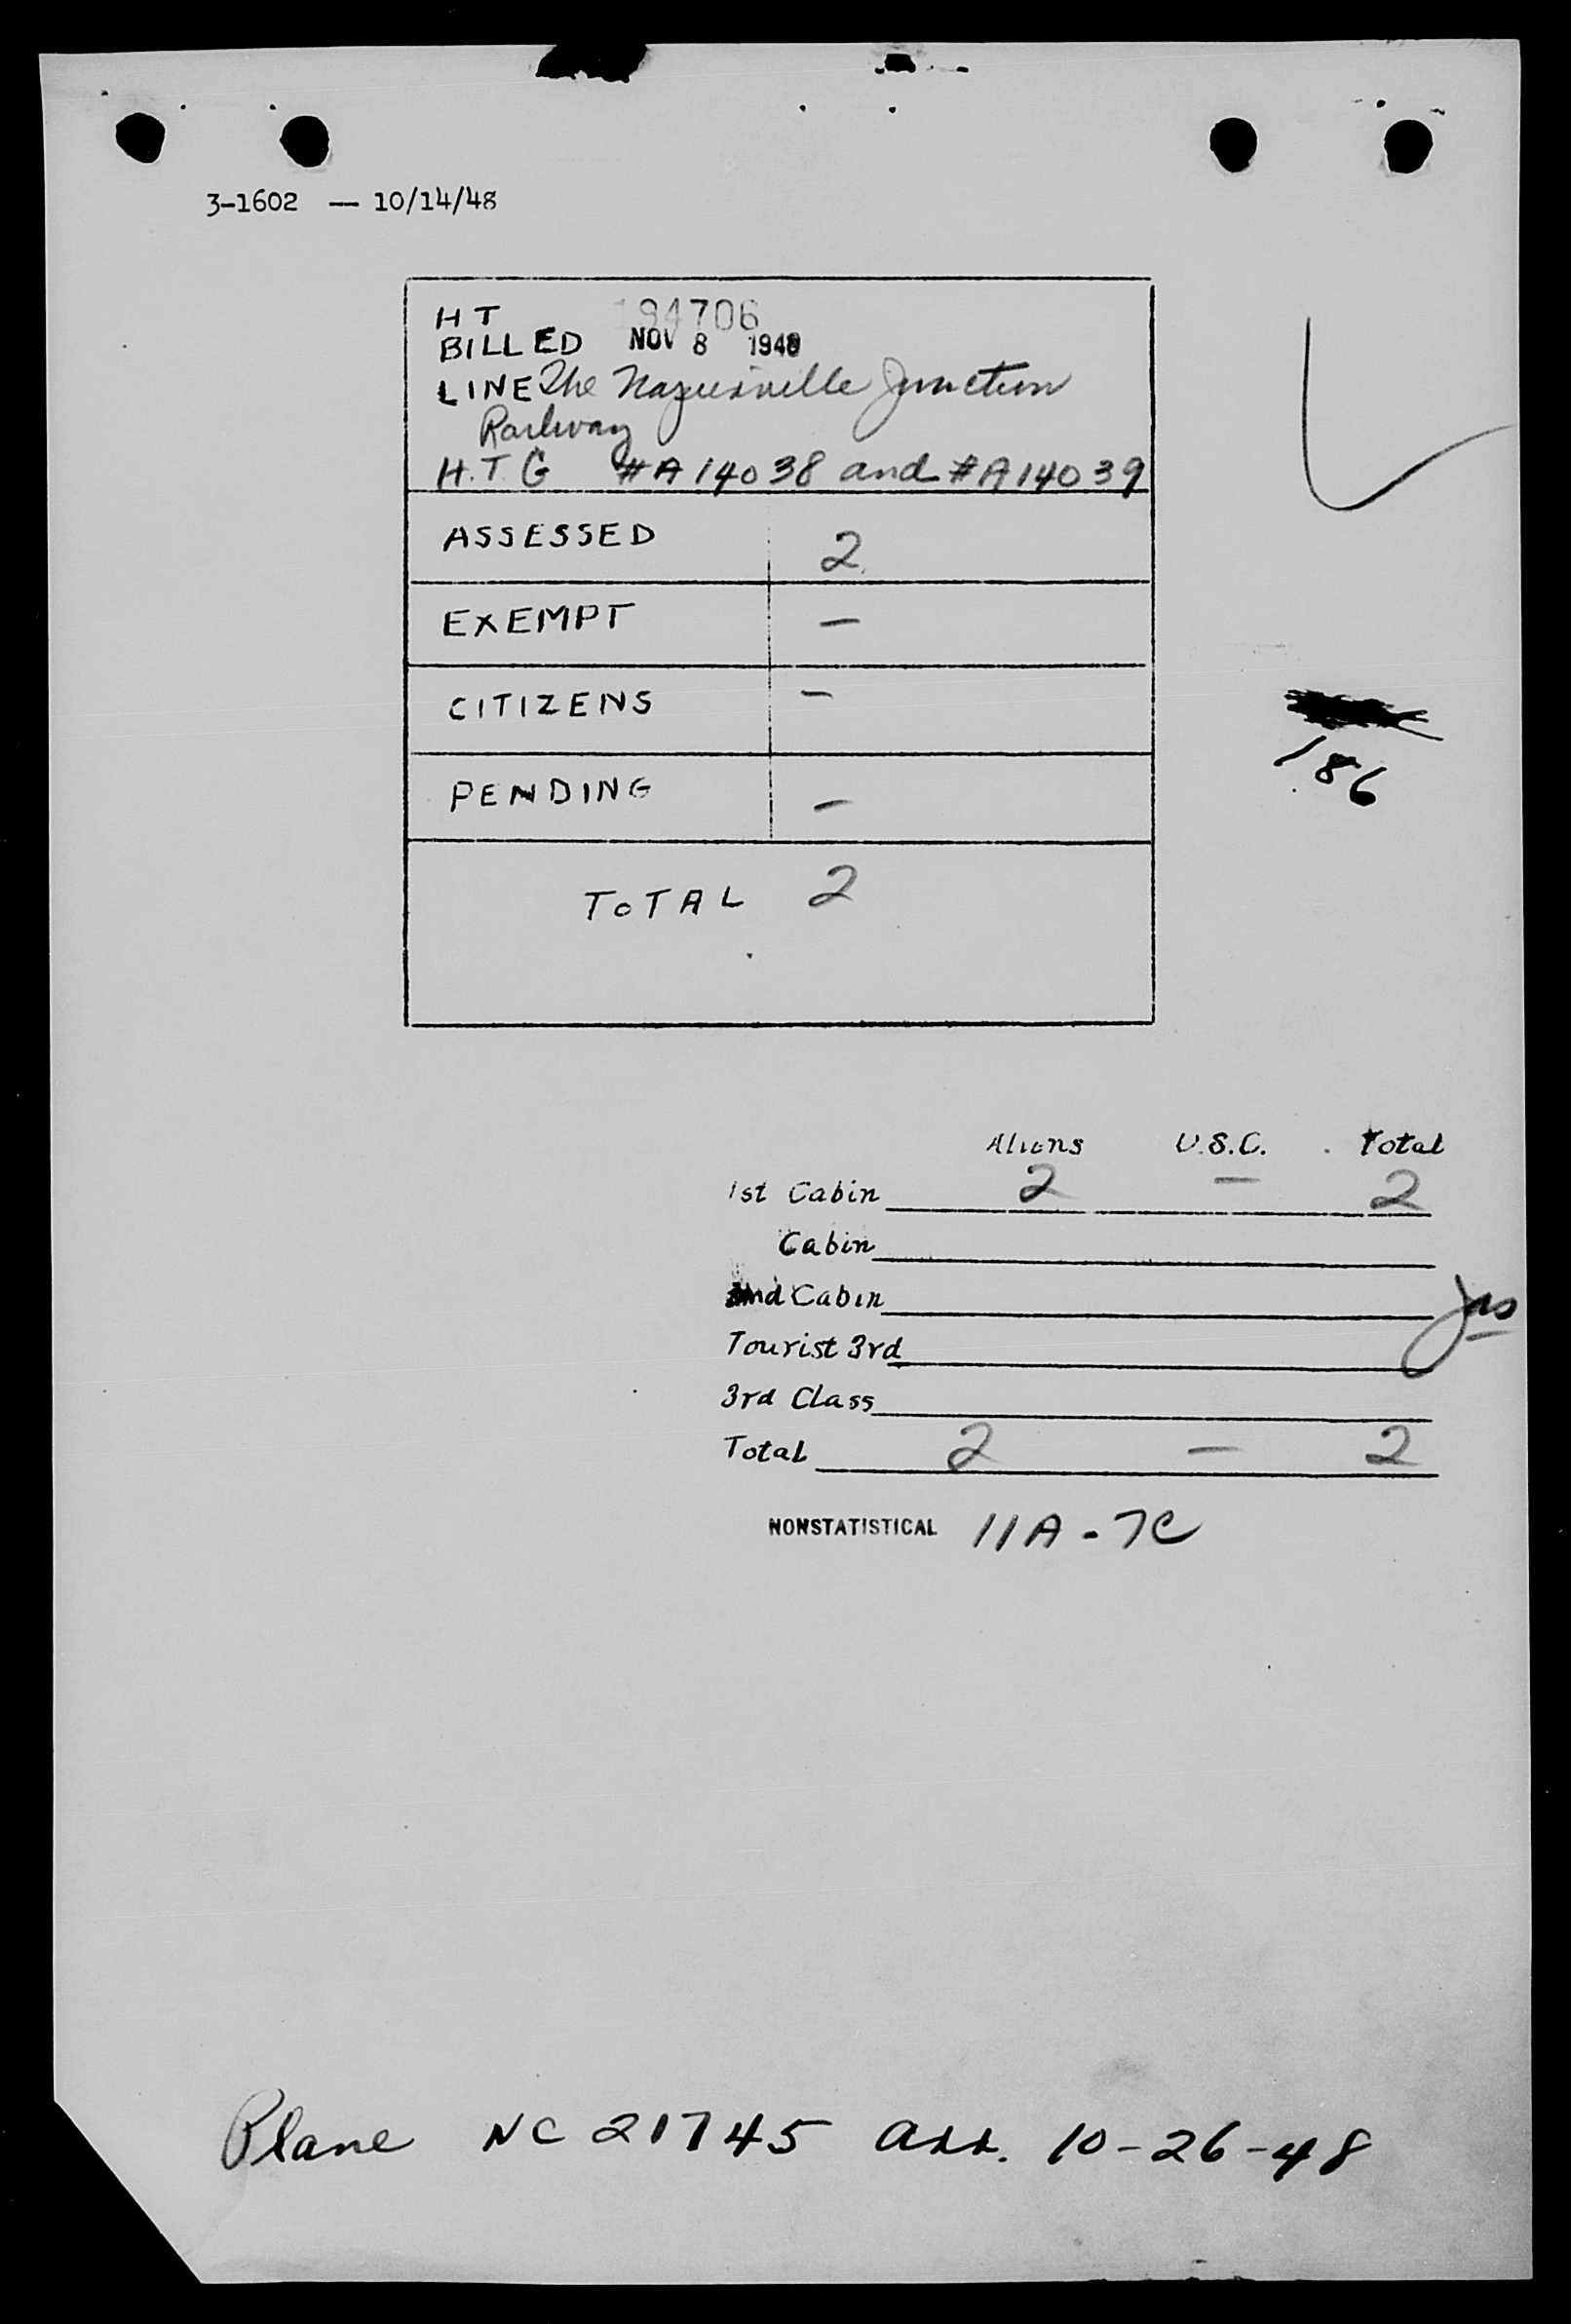 3-1602 — 10/14/48
HT 194706
BILLED NOV 8 1948
LINE The Napierville Junction
Railway
H.T.G #A14038 and #A14039
ASSESSED 2
EXEMPT —
CITIZENS —
PENDING —
TOTAL 2
186
Aliens U.S.C. Total
1st Cabin 2 — 2
Cabin
2nd Cabin
Tourist 3rd
3rd Class
Total 2 — 2
NONSTATISTICAL 11A-7C
Plane NC 21745 arr. 10-26-48